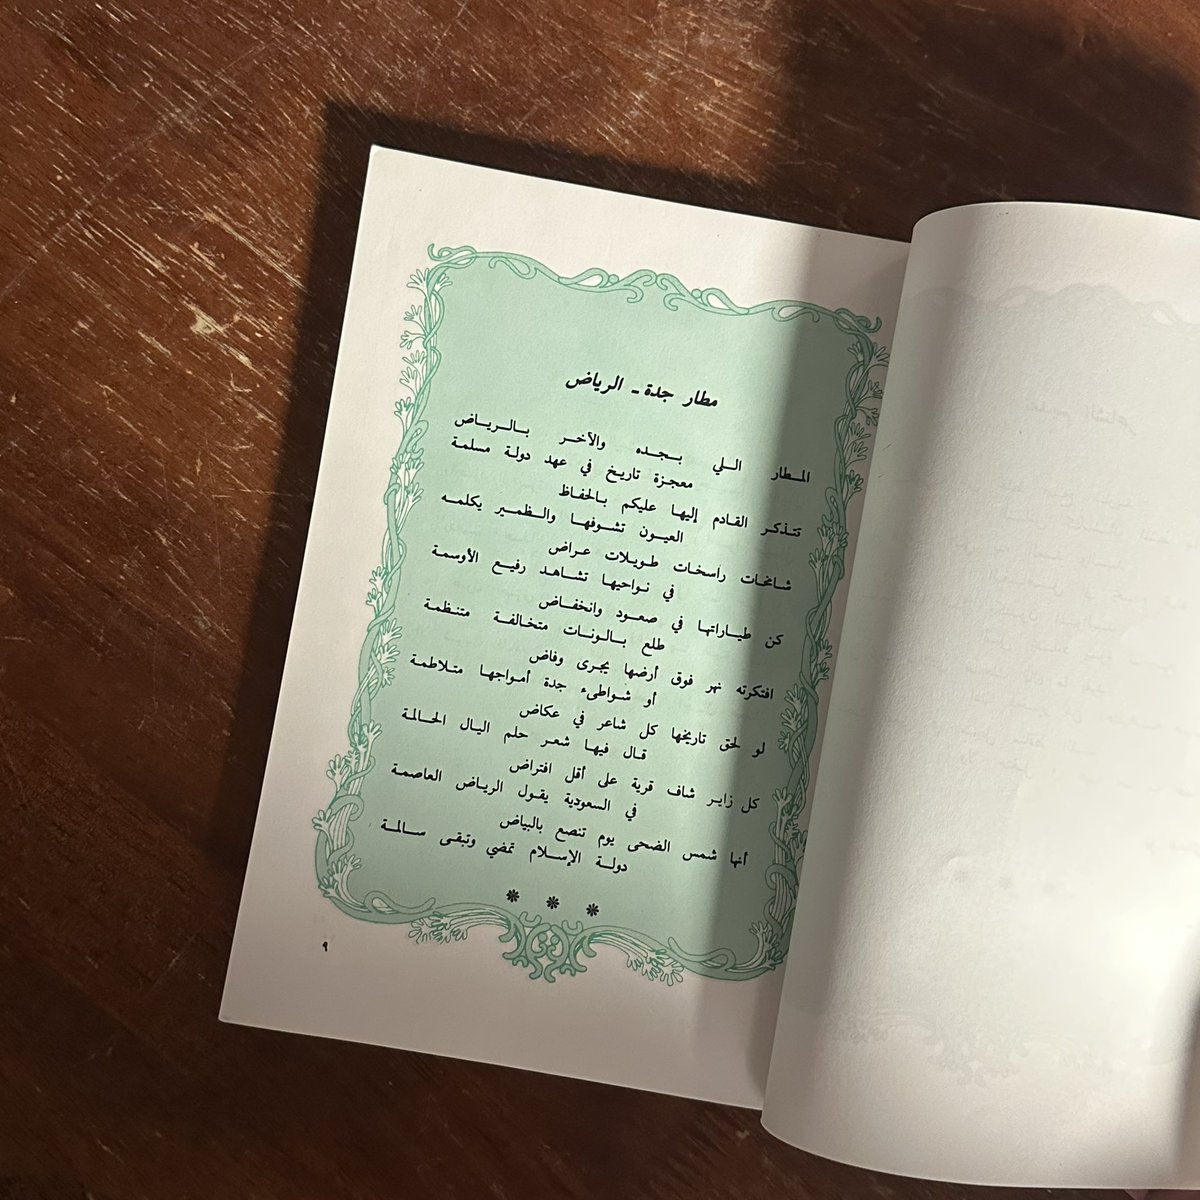 مطار جدة ـ الرياض
المطار اللي بجده والآخر بالرياض
معجزة تاريخ في عهد دولة مسلمة
تتذكر القادم إليها عليكم بالحفاظ
العيون تشوفها والظمير يكلمه
شامخات راسخات طويلات عراض
في نواحيها تشاهد رفيع الأوسمة
كن طياراتها في صعود وانخفاض
طلع بالونات متخالفة متنظمة
افتكرته نهر فوق أرضها يجرى وفاض
أو شواطىء جدة أمواجها متلاطمة
لو لحق تاريخها كل شاعر في عكاض
قال فيها شعر حلم اليال الحالمة
كل زاير شاف قرية على أقل افتراض
في السعودية يقول الرياض العاصمة
أنها شمس الضحى يوم تنصع بالبياض
دولة الإسلام تمضي وتبقى سالمة
٩